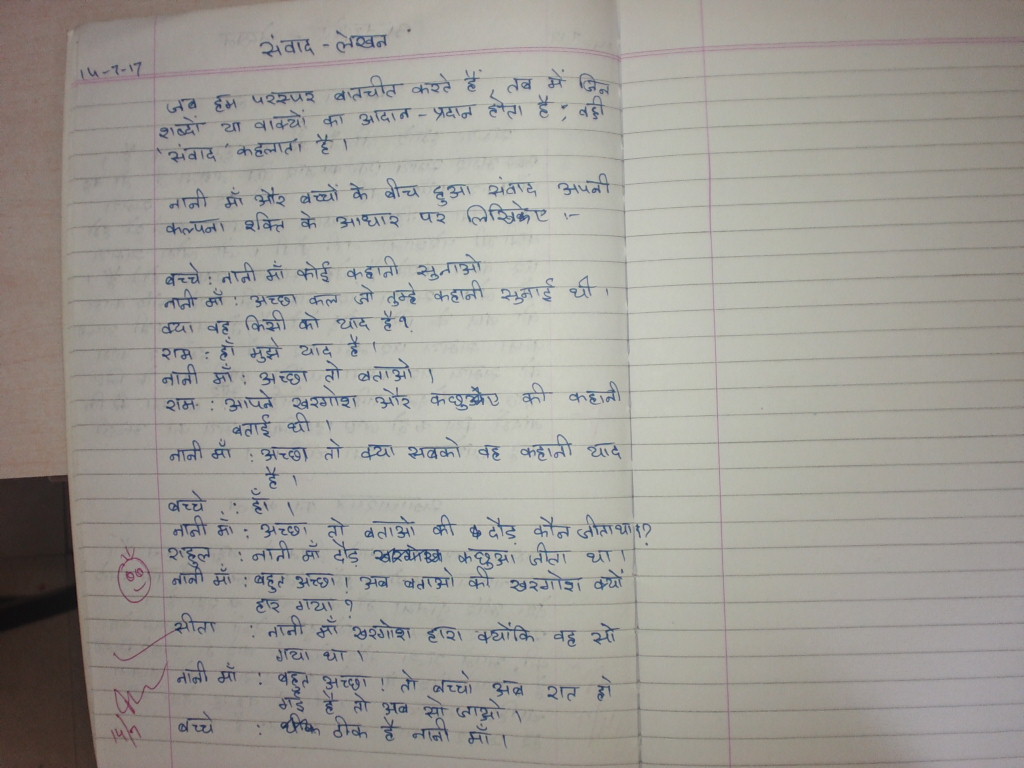 संवाद - लेखन
14-7-17
जब हम परस्पर बातचीत करते हैं, तब में जिन
शब्दों या वाक्यों का आदान - प्रदान होता है ; वही
'संवाद' कहलाता है ।
नानी माँ और बच्चों के बीच हुआ संवाद अपनी
कल्पना शक्ति के आधार पर लिखिए :-
बच्चे : नानी माँ कोई कहानी सुनाओ
नानी माँ : अच्छा कल जो तुम्हे कहानी सुनाई थी ।
क्या वह किसी को याद है ?
राम : हाँ मुझे याद है ।
नानी माँ : अच्छा तो बताओ ।
राम : आपने खरगोश और कछुए की कहानी
बताई थी ।
नानी माँ : अच्छा तो क्या सबको वह कहानी याद
है ।
बच्चे : हाँ ।
नानी माँ : अच्छा तो बताओं की दौड़ कौन जीता था ?
राहुल : नानी माँ दौड़ कछुआ जीता था ।
नानी माँ : बहुत अच्छा ! अब बताओ की खरगोश क्यों
हार गया ?
सीता : नानी माँ खरगोश हारा क्योंकि वह सो
गया था ।
नानी माँ : बहुत अच्छा ! तो बच्चो अब रात हो
गई है तो अब सो जाओ ।
बच्चे : ठीक है नानी माँ ।